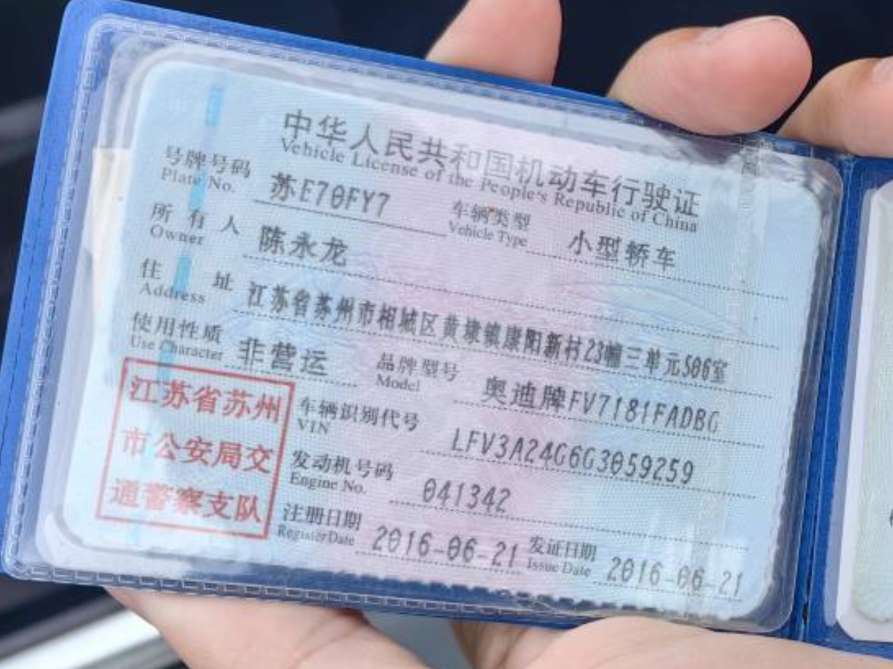 中华人民共和国机动车行驶证
Vehicle License of the People's Republic of China
号牌号码 苏E70FY7 车辆类型 小型轿车
Plate No. Vehicle Type
所有人 陈永龙
Owner
住址 江苏省苏州市相城区黄埭镇康阳新村23幢三单元506室
Address
使用性质 非营运 品牌型号 奥迪牌FV7181FADBG
Use Character Model
江苏省苏州
市公安局交
通警察支队
车辆识别代号 LFV3A24G6G3059259
VIN
发动机号码 041342
Engine No.
注册日期 2016-06-21 发证日期 2016-06-21
Register Date Issue Date